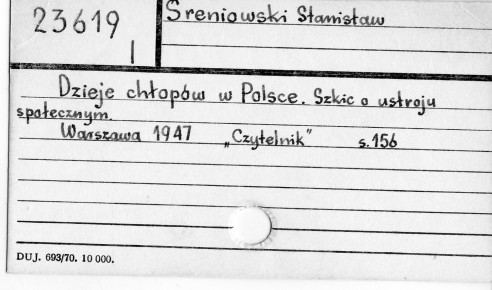 23619
I
Sreniowski Stanisław
Dzieje chłopów w Polsce. Szkic o ustroju
społecznym.
Warszawa 1947 „Czytelnik” s. 156
DUJ. 693/70. 10 000.